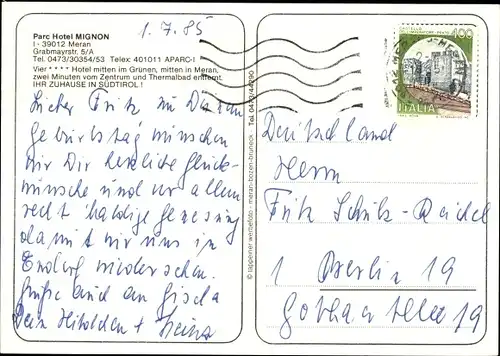 1.7.85
Parc Hotel MIGNON
I - 39012 Meran
Grabmayrstr. 5/A
Tel. 0473/30354/53 Telex 401011 APARC-I
Vier **** Hotel mitten im Grünen, mitten in Meran,
zwei Minuten vom Zentrum und Thermalbad entfernt.
IHR ZUHAUSE IN SÜDTIROL!
Lieber Fritz zu Deinem
Geburtstag wünschen
wir Dir herzliche Glück-
wünsche und vor allem
recht baldige Genesung
damit wir uns in
wiedersehen.
Grüße auch an Gisela
Dein + Heinz
© tappeiner werbefoto · meran-bozen-bruneck Tel. 0473/44290
400
ITALIA
Deutschland
Herrn
Fritz Schulz-Reichel
1 Berlin 19
Gothaallee 19